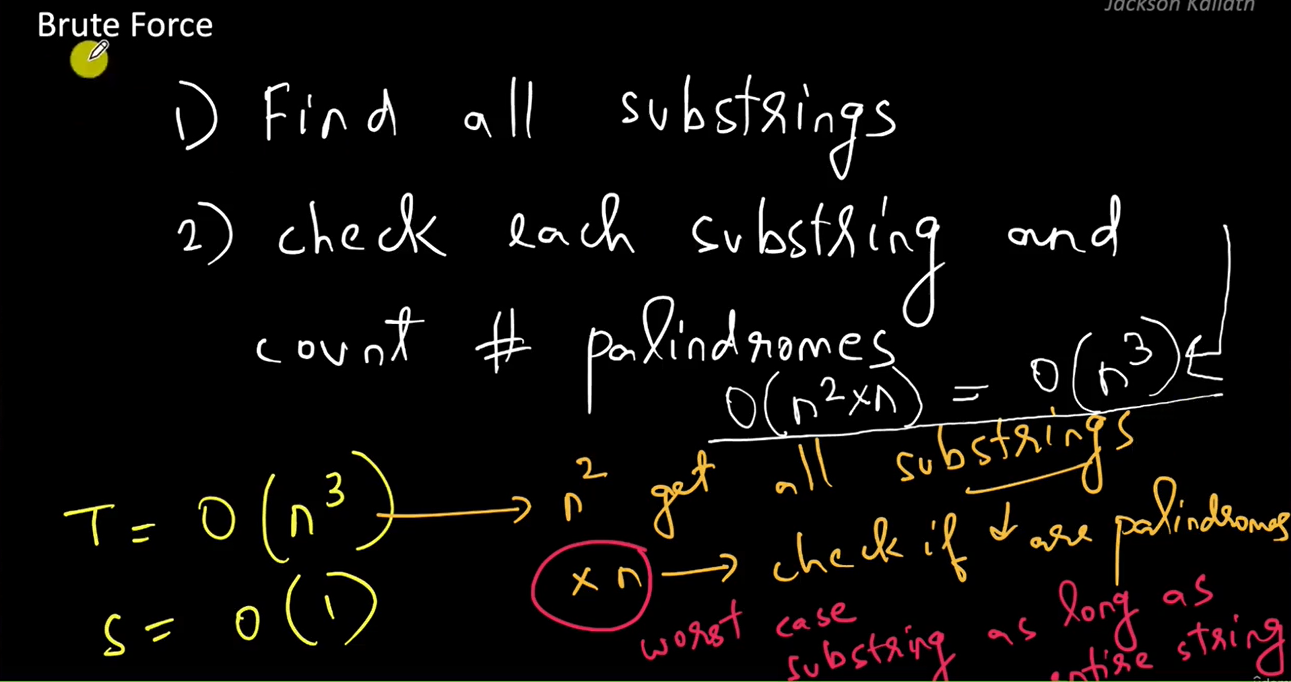 Jackson Kallath
Brute Force
1) Find all substrings
2) check each substring and
count # palindromes
O(n²xn) = O(n³)
T = O(n³) → n² get all substrings
x n → check if ↓ are palindromes
S = O(1)
worst case
substring as long as
entire string